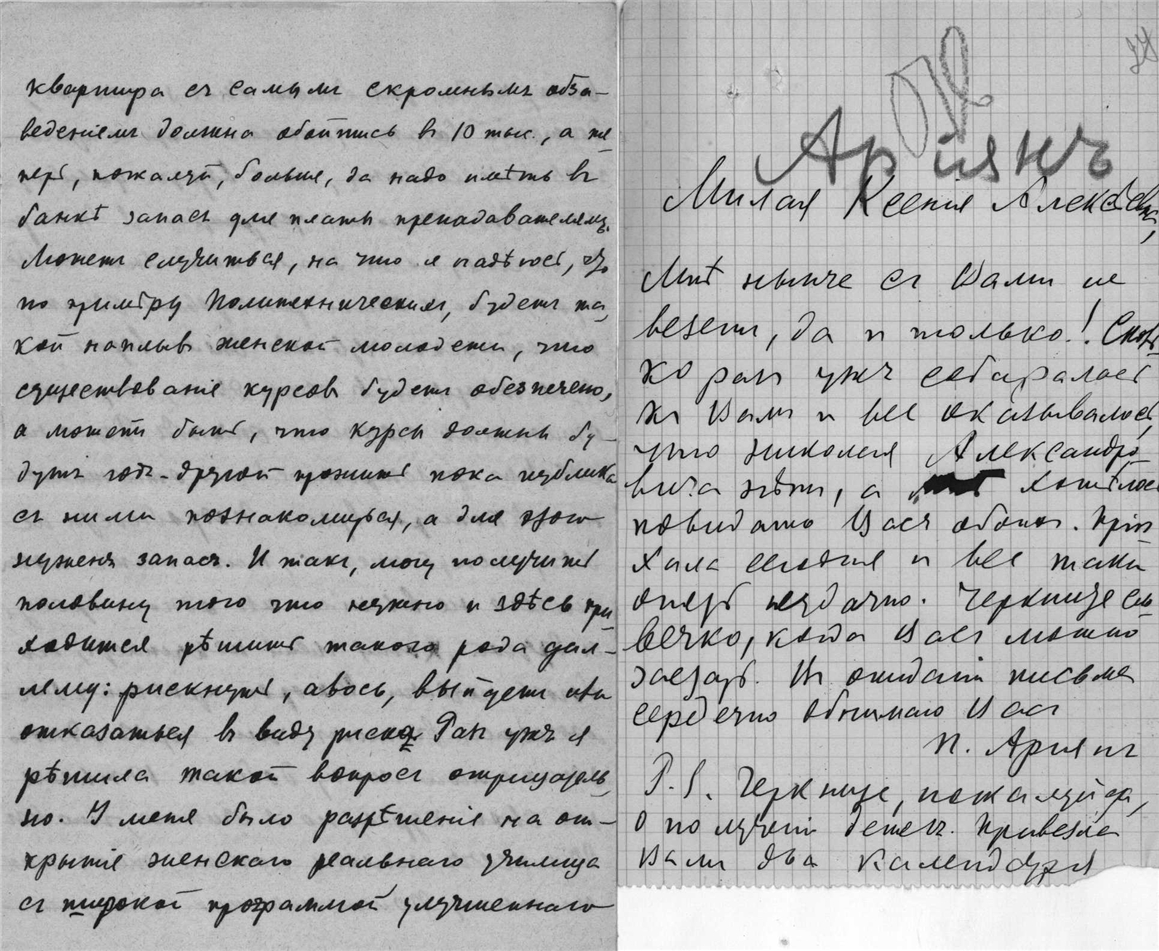 квартира съ самымъ скромнымъ обза-
веденіемъ должна обойтись въ 10 тыс., а те
перь, пожалуй, больше, да надо имѣть въ
банкѣ запасъ для платы преподавателямъ.
Можетъ случиться, на что я надѣюсь, что
по примѣру Политехническихъ, будетъ та
кой наплывъ женской молодежи, что
существованіе курсовъ будетъ обезпечено,
а можетъ быть, что курсы должны бу-
дутъ годъ-другой прожить пока публика
съ ними познакомиться, а для этого
нуженъ запасъ. И такъ, могу получить
половину того что нужно и здѣсь при
ходится рѣшить такого рода дил-
лему: рискнуть, авось, выйдетъ или
отказаться въ виду риска. Разъ ужъ я
рѣшила такой вопросъ отрицатель
но. У меня было разрѣшеніе на от-
крытіе женскаго реальнаго училища
съ широкой программой улучшеннаго
38
Ариянъ
Милая Ксенія Алексѣевна,
Мнѣ нынче съ Вами не
везетъ, да и только! Сколь
ко разъ ужъ собиралась
къ Вамъ и все оказывалось,
что Николая Александро
вича нѣтъ, а хотѣлось
повидать Васъ обоихъ. Пріѣ
хала сегодня и все таки
опять неудачно. Черкните сло
вечко, когда Васъ можно
застать. Въ ожиданіи письма
сердечно обнимаю Васъ
П. Ариянъ
P.S. Черкните, пожалуйста,
о полученіи денегъ. Привезла
Вамъ два календаря